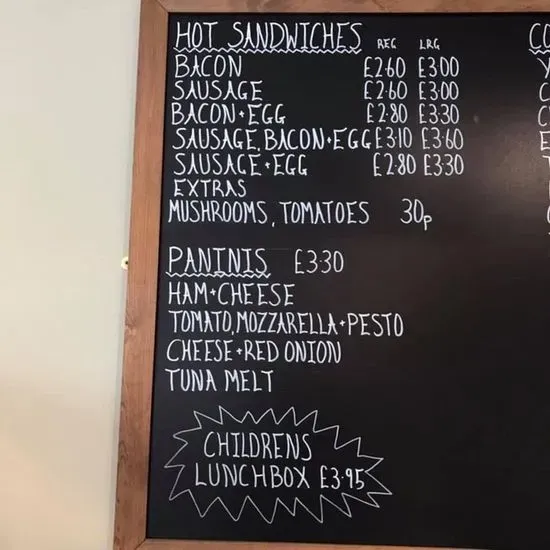 HOT SANDWICHES REG LRG
BACON £2.60 £3.00
SAUSAGE £2.60 £3.00
BACON+EGG £2.80 £3.30
SAUSAGE, BACON+EGG £3.10 £3.60
SAUSAGE+EGG £2.80 £3.30
EXTRAS
MUSHROOMS, TOMATOES 30p
PANINIS £3.30
HAM+CHEESE
TOMATO, MOZZARELLA+PESTO
CHEESE+RED ONION
TUNA MELT
CHILDRENS
LUNCHBOX £3.95